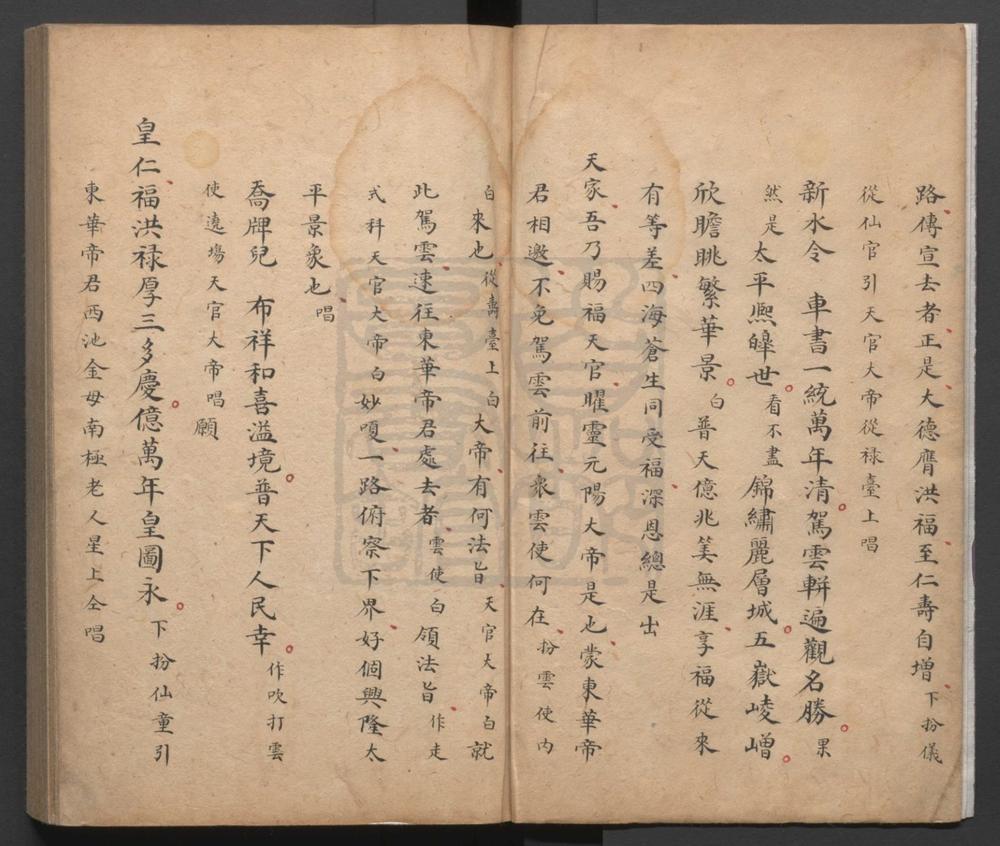 路傳宣去者正是大德膺洪福至仁壽自增下扮儀
從仙官引天官大帝從祿臺上唱
新水令　車書一統萬年清駕雲軿遍觀名勝果
然是太平熈皞世看不盡錦繡麗層城五嶽崚嶒
欣瞻眺繁華景白普天億兆羙無涯享福從來
有等差四海蒼生同受福深恩總是出
天家吾乃賜福天官曜靈元陽大帝是也蒙東華帝
君相邀不免駕雲前往衆雲使何在扮雲使内
白來也從壽臺上白大帝有何法旨天官大帝白就
此駕雲速往東華帝君處去者雲使白領法旨作走
式科天官大帝白妙嗄一路俯察下界好個興隆太
平景象也唱
喬牌兒　布祥和喜溢境普天下人民幸作吹打雲
使遶場天官大帝唱願
皇仁福洪禄厚三多慶億萬年皇圖永下扮仙童引
東華帝君西池金母南極老人星上仝唱